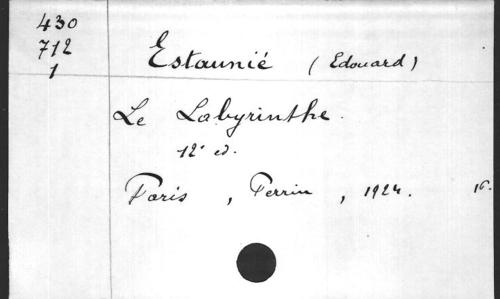 430
712
1
Estaunié (Edouard)
Le Labyrinthe.
12e ed.
Paris, Perrin, 1924. 16.